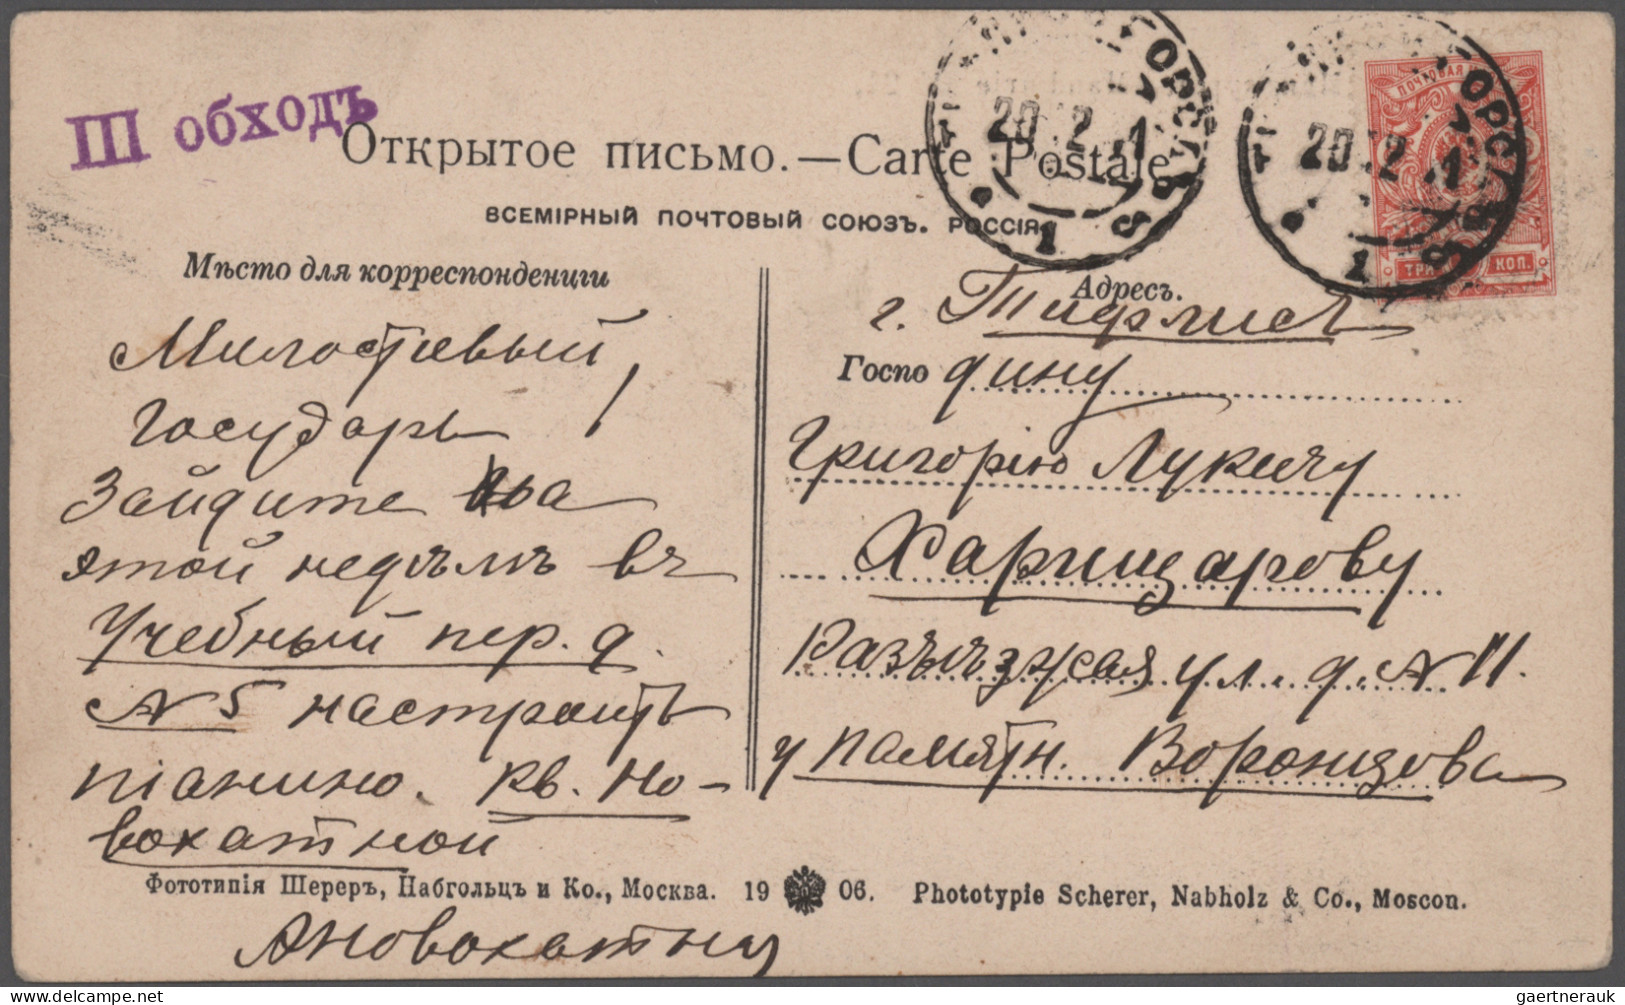 III обходъ
Открытое письмо.—Carte Postale.
ВСЕМІРНЫЙ ПОЧТОВЫЙ СОЮЗЪ. РОССІЯ.
Мѣсто для корреспонденціи
Милостивый
Государь!
Зайдите на
этой недѣлѣ въ
Учебный пер. д.
№ 5 настроить
піанино. Кв. Но-
вокатной
Адресъ.
г. Тифлисъ
Госпо дину
Григорію Лукичу
Разъѣзжая ул. д. № 11.
у памятн. Воронцова
ПОЧТОВАЯ
ТРИ КОП.
20 12 1
20 12 1
Фототипія Шереръ, Набгольцъ и Ко., Москва. 19 06. Phototypie Scherer, Nabholz & Co., Moscou.
gaertnerauk